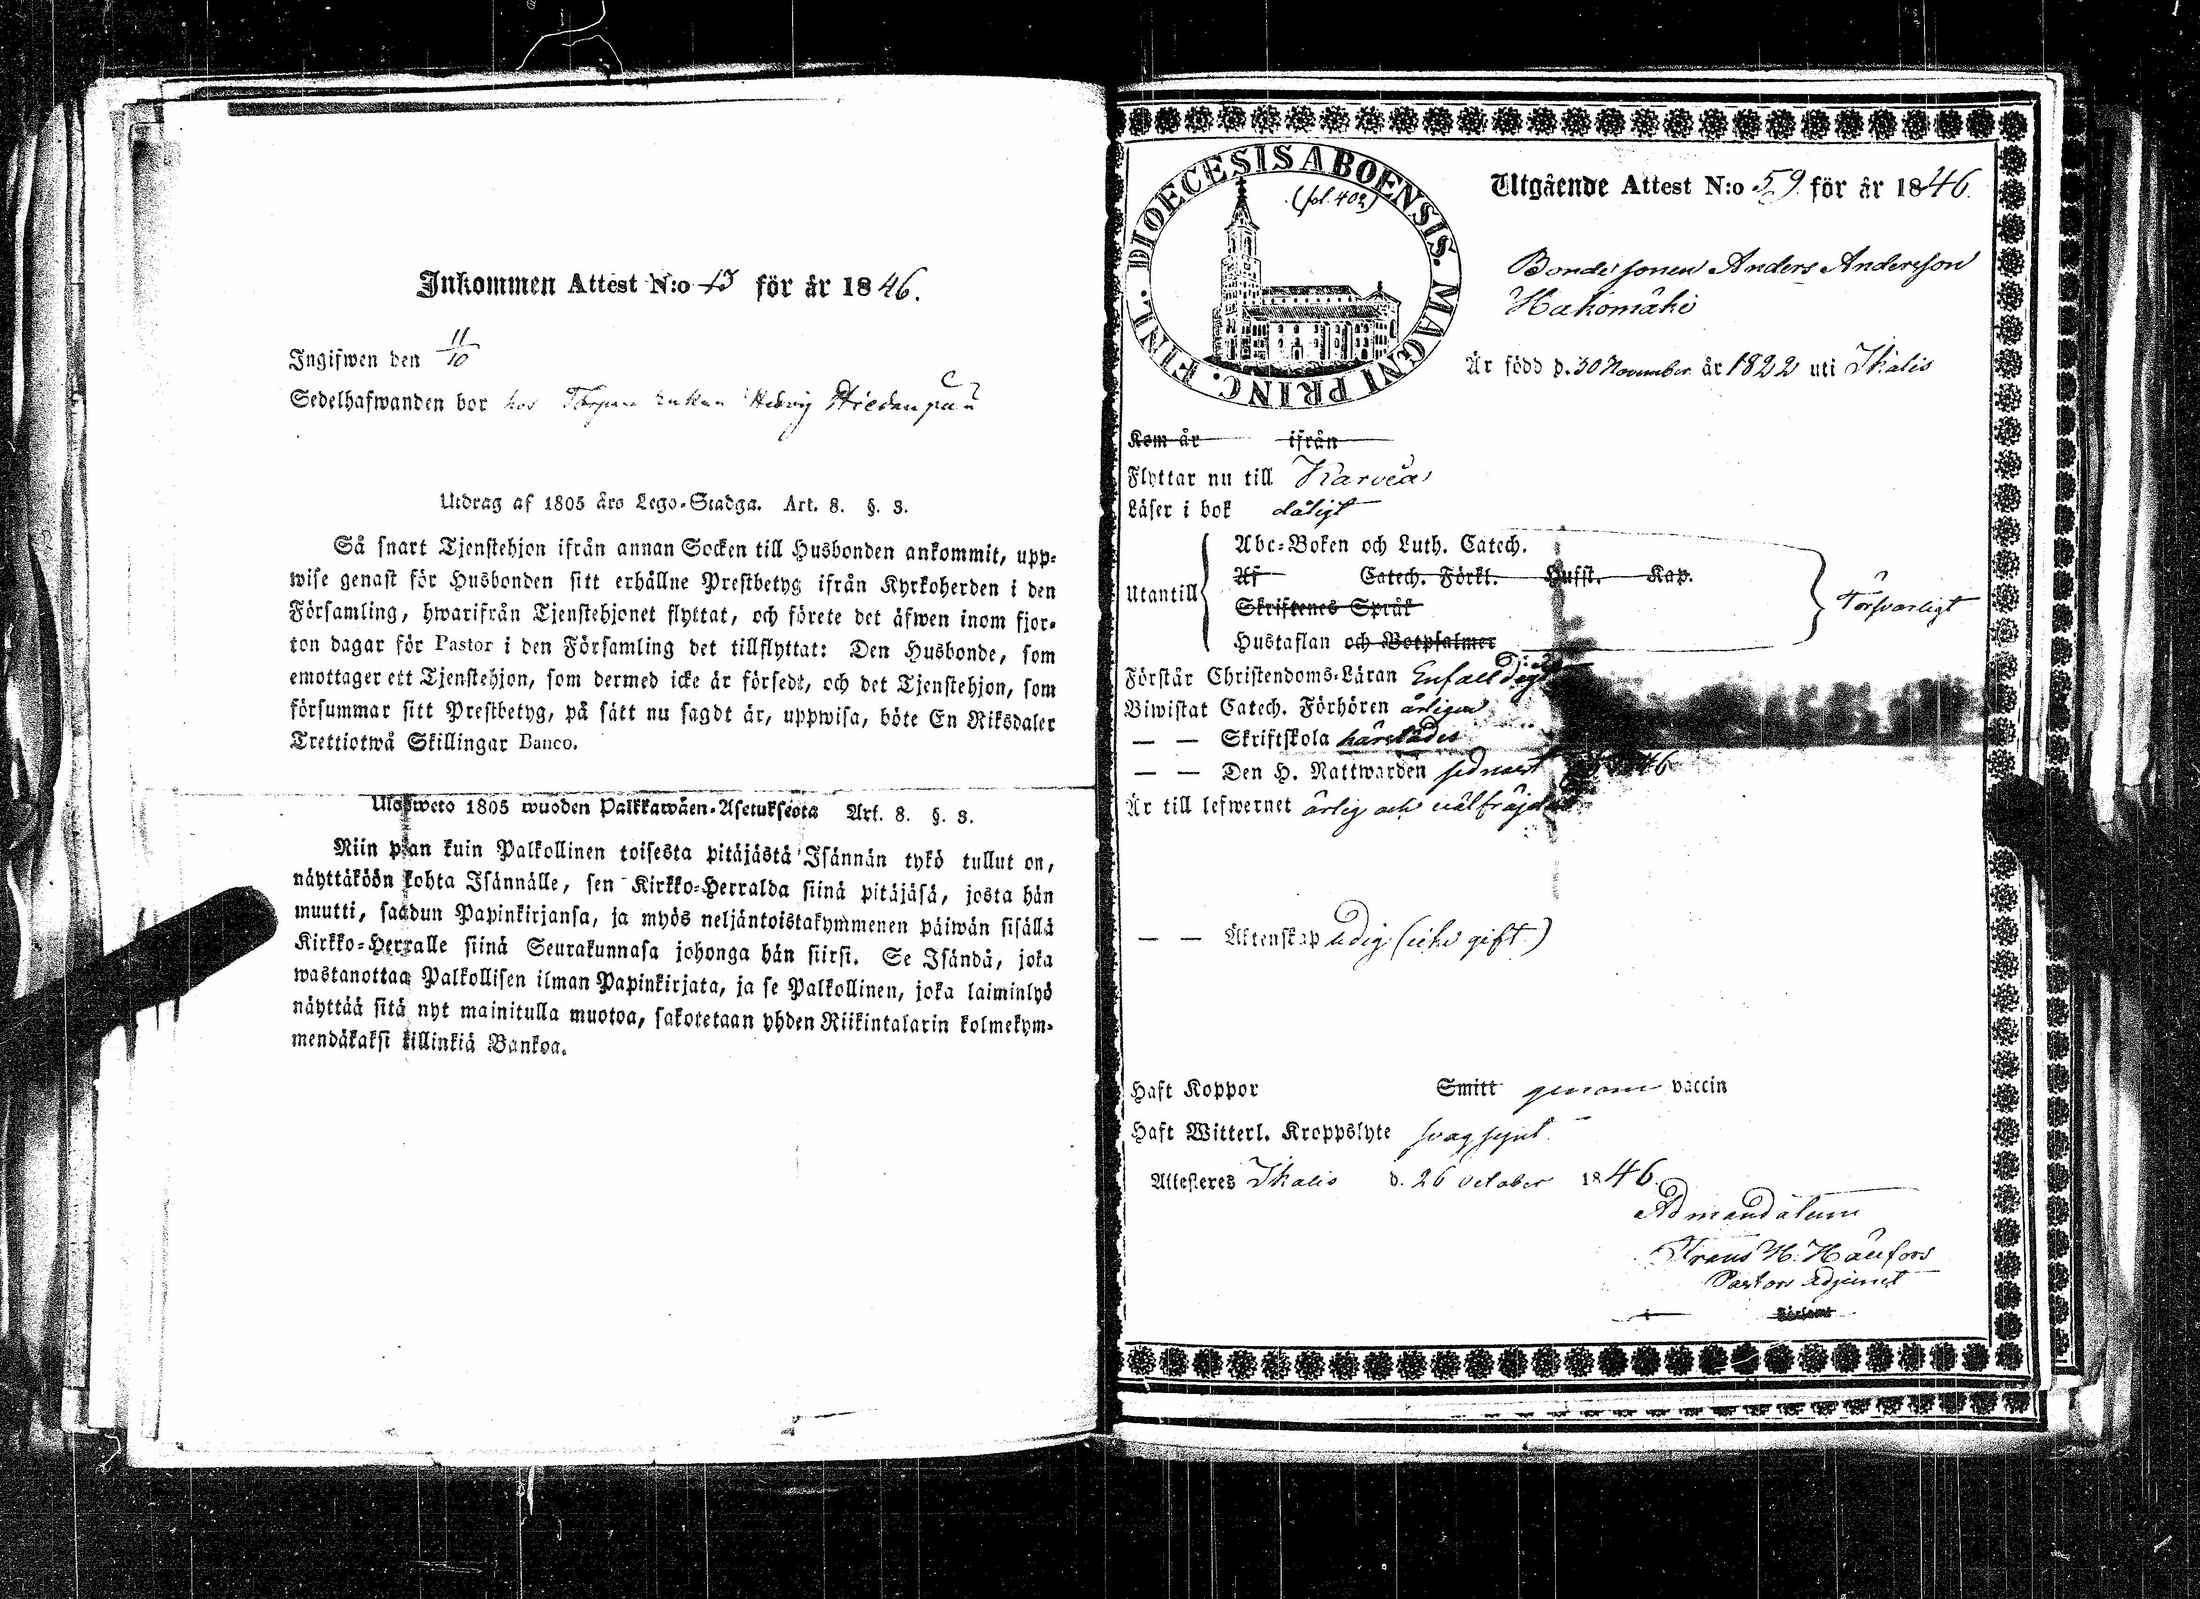 Inkommen Attest N:o 13 för år 1846.
Ingifwen den 11/10
Sedelhafwanden bor hos Enkan Hedvig
Utdrag af 1805 års Lego-Stadga. Art. 8. §. 3.
Så snart Tjenstehjon ifrån annan Socken till Husbonden ankommit, upp-
wise genast för Husbonden sitt erhållne Prestbetyg ifrån Kyrkoherden i den
Församling, hwarifrån Tjenstehjonet flyttat, och förete det äfwen inom fjor-
ton dagar för Pastor i den Församling det tillflyttat: Den Husbonde, som
emottager ett Tjenstehjon, som dermed icke är försedt, och det Tjenstehjon, som
försummar sitt Prestbetyg, på sätt nu sagdt är, uppwisa, böte En Riksdaler
Trettiotwå Skillingar Banco.
Ulosweto 1805 wuoden Palkkawäen-Asetuksesta Art. 8. §. 3.
Niin pian kuin Palkollinen toisesta pitäjästä Isännän tykö tullut on,
näyttäköön kohta Isännälle, sen Kirkko-Herralda siinä pitäjäsä, josta hän
muutti, saadun Papinkirjansa, ja myös neljäntoistakymmenen päiwän sisällä
Kirkko-Herralle siinä Seurakunnasa johonga hän siirsi. Se Isändä, joka
wastanottaa Palkollisen ilman Papinkirjata, ja se Palkollinen, joka laiminlyö
näyttää sitä nyt mainitulla muotoa, sakotetaan yhden Riikintalarin kolmekym-
mendäkaksi killinkiä Bankoa.
DIOECESIS ABOENSIS. MAGNI PRINC. FINL.
(fol. 402)
Utgående Attest N:o 59 för år 1846.
Bondesonen Anders Andersson
Hakomäki
Är född d. 30 November år 1822 uti Ikalis
Kom år ifrån
Flyttar nu till Karvia
Läser i bok dåligt
Utantill
Abc-Boken och Luth. Catech.
Af Catech. Förkl. Hufst. Kap.
Skriftenes Språk
Hustaflan och Botpsalmer
Försvarligt
Förstår Christendoms-Läran Enfaldigt
Biwistat Catech. Förhören årligen
— — Skriftskola härstädes
— — Den H. Nattwarden sednast 46
Är till lefwernet ärlig och välfräjdad
— — Äktenskap ledig (icke gift)
Haft Koppor Smitt genom vaccin
Haft Witterl. Kroppslyte svagsynt.
Attesteres Ikalis d. 26 October 1846.
Ad mandatum
Frans H. Hällfors
Pastors Adjunct
i Församl.